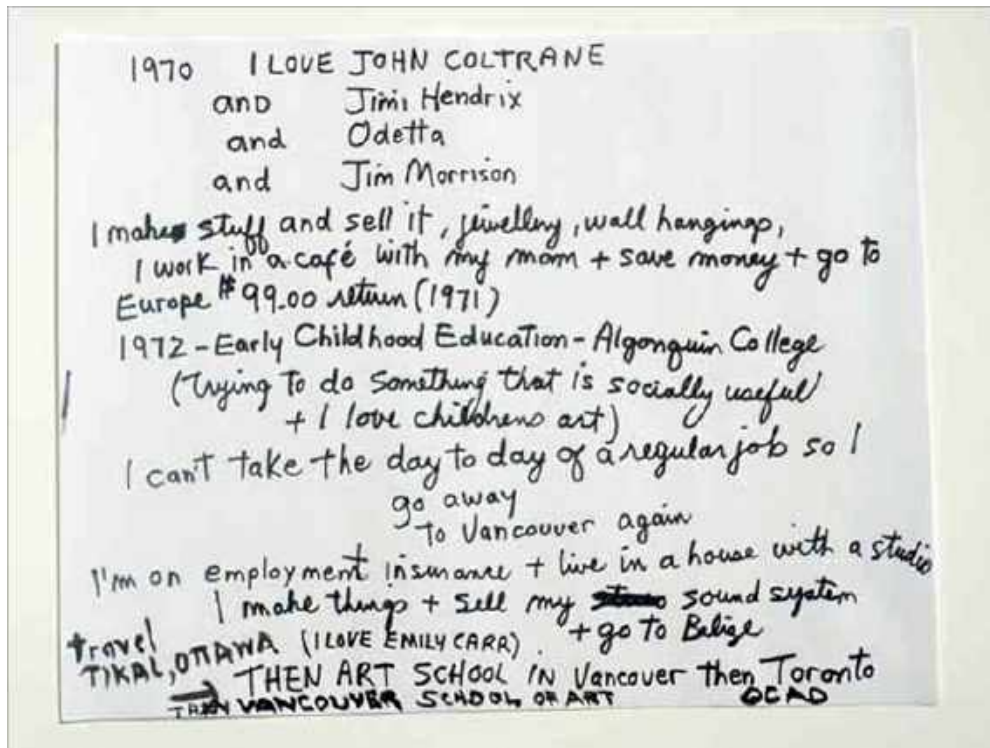 1970 I LOVE JOHN COLTRANE
and Jimi Hendrix
and Odetta
and Jim Morrison
I make stuff and sell it, jewellery, wall hangings,
I work in a café with my mom + save money + go to
Europe $99.00 return (1971)
1972 - Early Childhood Education - Algonquin College
(Trying to do something that is socially useful
+ I love childrens art)
I can't take the day to day of a regular job so I
go away
to Vancouver again
I'm on employment insurance + live in a house with a studio
I make things + sell my sound system
+ go to Belize
travel
TIKAL, OTTAWA (I LOVE EMILY CARR)
THEN ART SCHOOL IN Vancouver then Toronto
VANCOUVER SCHOOL OF ART OCAD